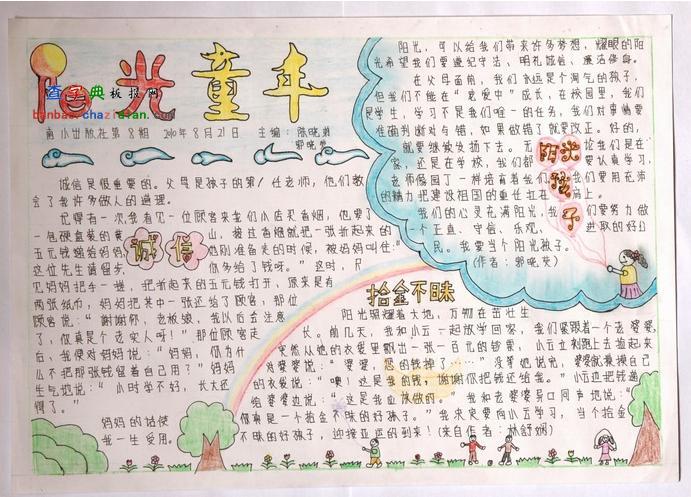 阳光童年
查字典板报网
banbao.chazidian.com
南小出版社第8期 2010年8月21日 主编：陈晓娟
郭晓英
诚信是很重要的。父母是孩子的第1任老师，他们教
会了我许多做人的道理。
记得有一次，我看见一位顾客来我们小店买香烟，他要了
一包硬盒装的黄 山，接过香烟就把一张折起来的
五元钱递给妈妈 他刚准备走的时候，被妈妈叫住：“
这位先生请留步 你多给了钱呀。”这时，只
见妈妈把手一搓，把折起来的五元钱打开，原来是有
两张纸币，妈妈把其中一张还给了顾客，那位
顾客说：“谢谢你，老板娘，我以后会注意
了，你真是个老实人呀！”那位顾客走
后，我便对妈妈说：“妈妈，你为什
么不把那张钱留着自己用？”妈妈
生气地说：“小时学不好，长大还
得了。”
妈妈的话使
我一生受用。
诚信
阳光，可以给我们带来许多梦想，耀眼的阳
光希望我们要遵纪守法、明礼诚信、廉洁修身。
在父母面前，我们永远是个淘气的孩子，
但我们不能在“宠爱中”成长，在校园里，我们
是学生，学习不是我们唯一的任务，我们对事情要
准确判断对与错，如果做错了就要改正。好的，
就要继续发扬下去。无 论我们是在
家，还是在学校，我们都 要认真学习，
老师像园丁一样培育着我们 我们要用充沛
的精力把建设祖国的重任扛在 肩上。
我们的心灵充满阳光，我 们要努力做
一个正直、守信、乐观、 进取的好公
民。我要当个阳光孩子。
（作者：郭晓英）
阳光
孩
子
拾金不昧
阳光照耀着大地，万物在茁壮生
长。前几天，我和小云一起放学回家，我们紧跟着一个婆婆，
突然从她的衣袋里飘出一张一百元的钞票，小云立刻跑上去捡起来
对婆婆说：“婆婆，您的钱掉了……”没等她说完，婆婆就摸摸自己
的衣袋说：“噢！这是我的钱，谢谢你把钱还给我。”小云边把钱递
给婆婆边说：“这是我应该做的。”我和老婆婆异口同声地说：“
你真是一个拾金不昧的好孩子。”我决定要向小云学习，当个拾金
不昧的好孩子，迎接亚运的到来！（来自作者：林舒娴）